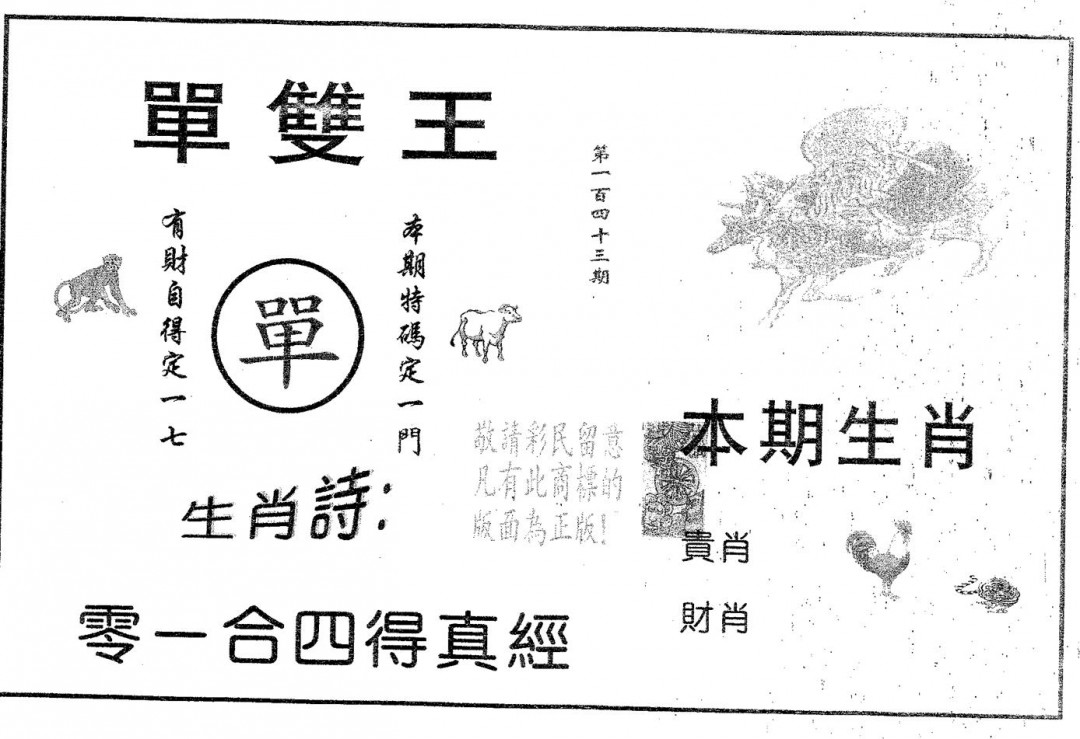 單雙王
第一百四十三期
本期特碼定一門
單
有財自得定一七
敬請彩民留意
凡有此商標的
版面為正版!
生肖詩:
零一合四得真經
本期生肖
貴肖
財肖